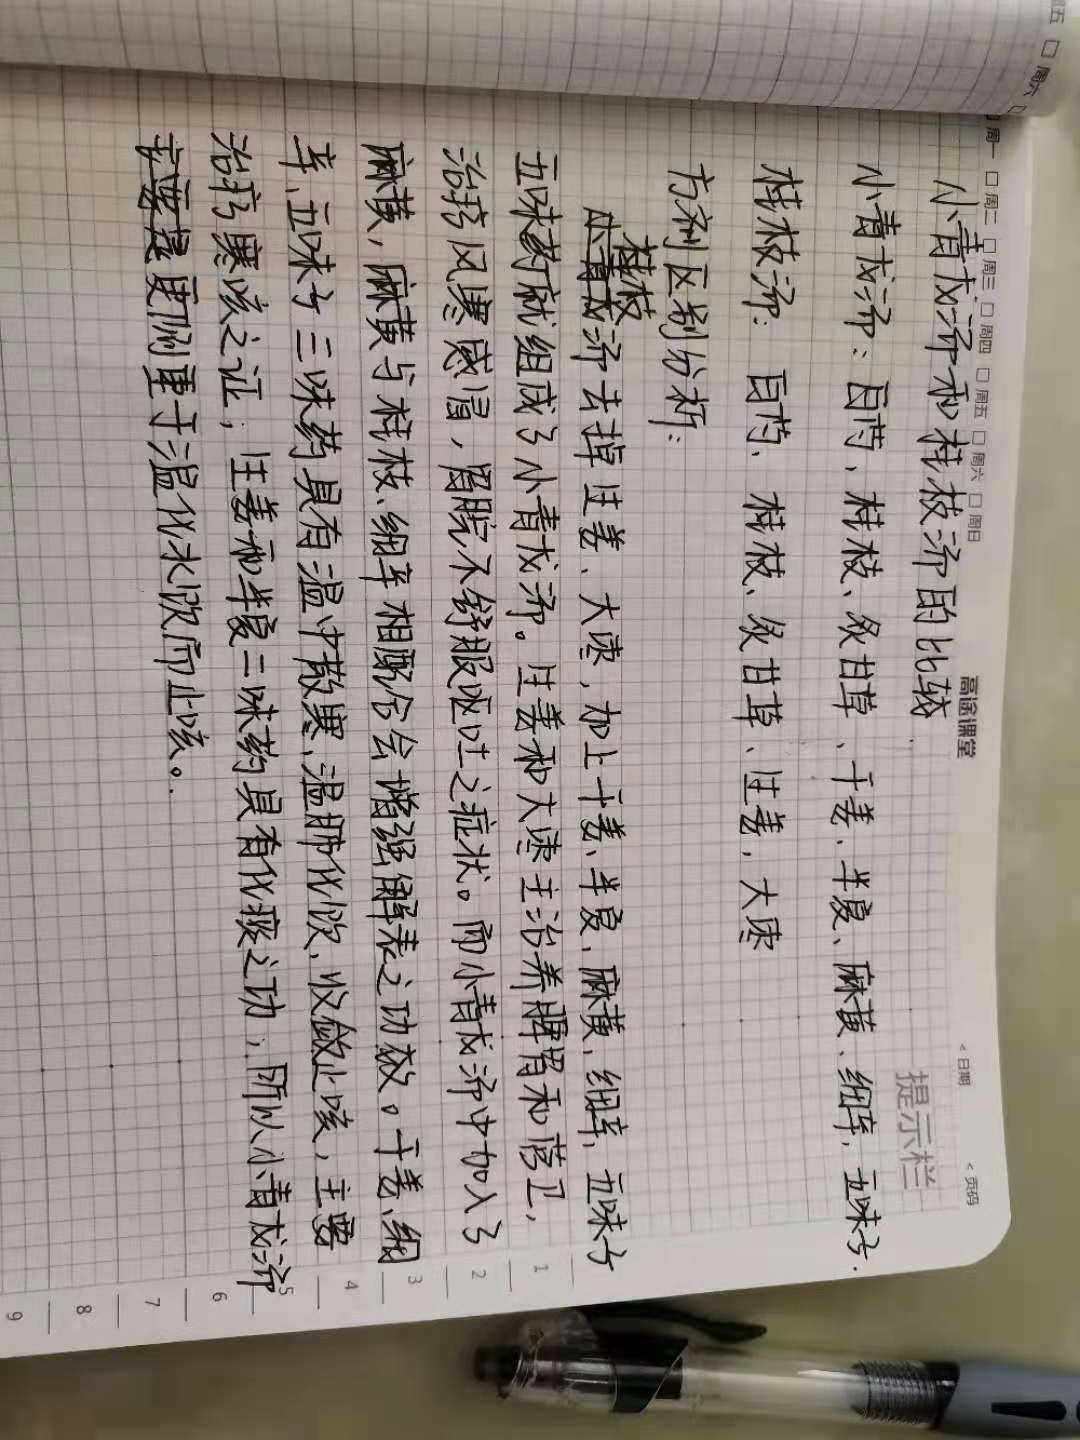 周五 □ 周六 □
□ 周一 □ 周二 □ 周三 □ 周四 □ 周五 □ 周六 □ 周日
高途课堂
<日期
<页码
提示栏
小青龙汤和桂枝汤的比较
小青龙汤：白芍、桂枝、炙甘草、干姜、半夏、麻黄、细辛，五味子.
桂枝汤：白芍、桂枝、炙甘草、生姜，大枣
方剂区别分析：
桂枝汤去掉生姜、大枣，加上干姜、半夏、麻黄，细辛，五味子
五味药就组成了小青龙汤。生姜和大枣主治养脾胃和营卫，
治疗风寒感冒，胃脘不舒服呕吐之症状。而小青龙汤中加入了
麻黄，麻黄与桂枝、细辛相配合会增强解表之功效。干姜、细
辛、五味子三味药具有温中散寒、温肺化饮、收敛止咳，主要
治疗寒咳之证；生姜和半夏二味药具有化痰之功，所以小青龙汤
更侧重于温化水饮而止咳。
1
2
3
4
5
6
7
8
9